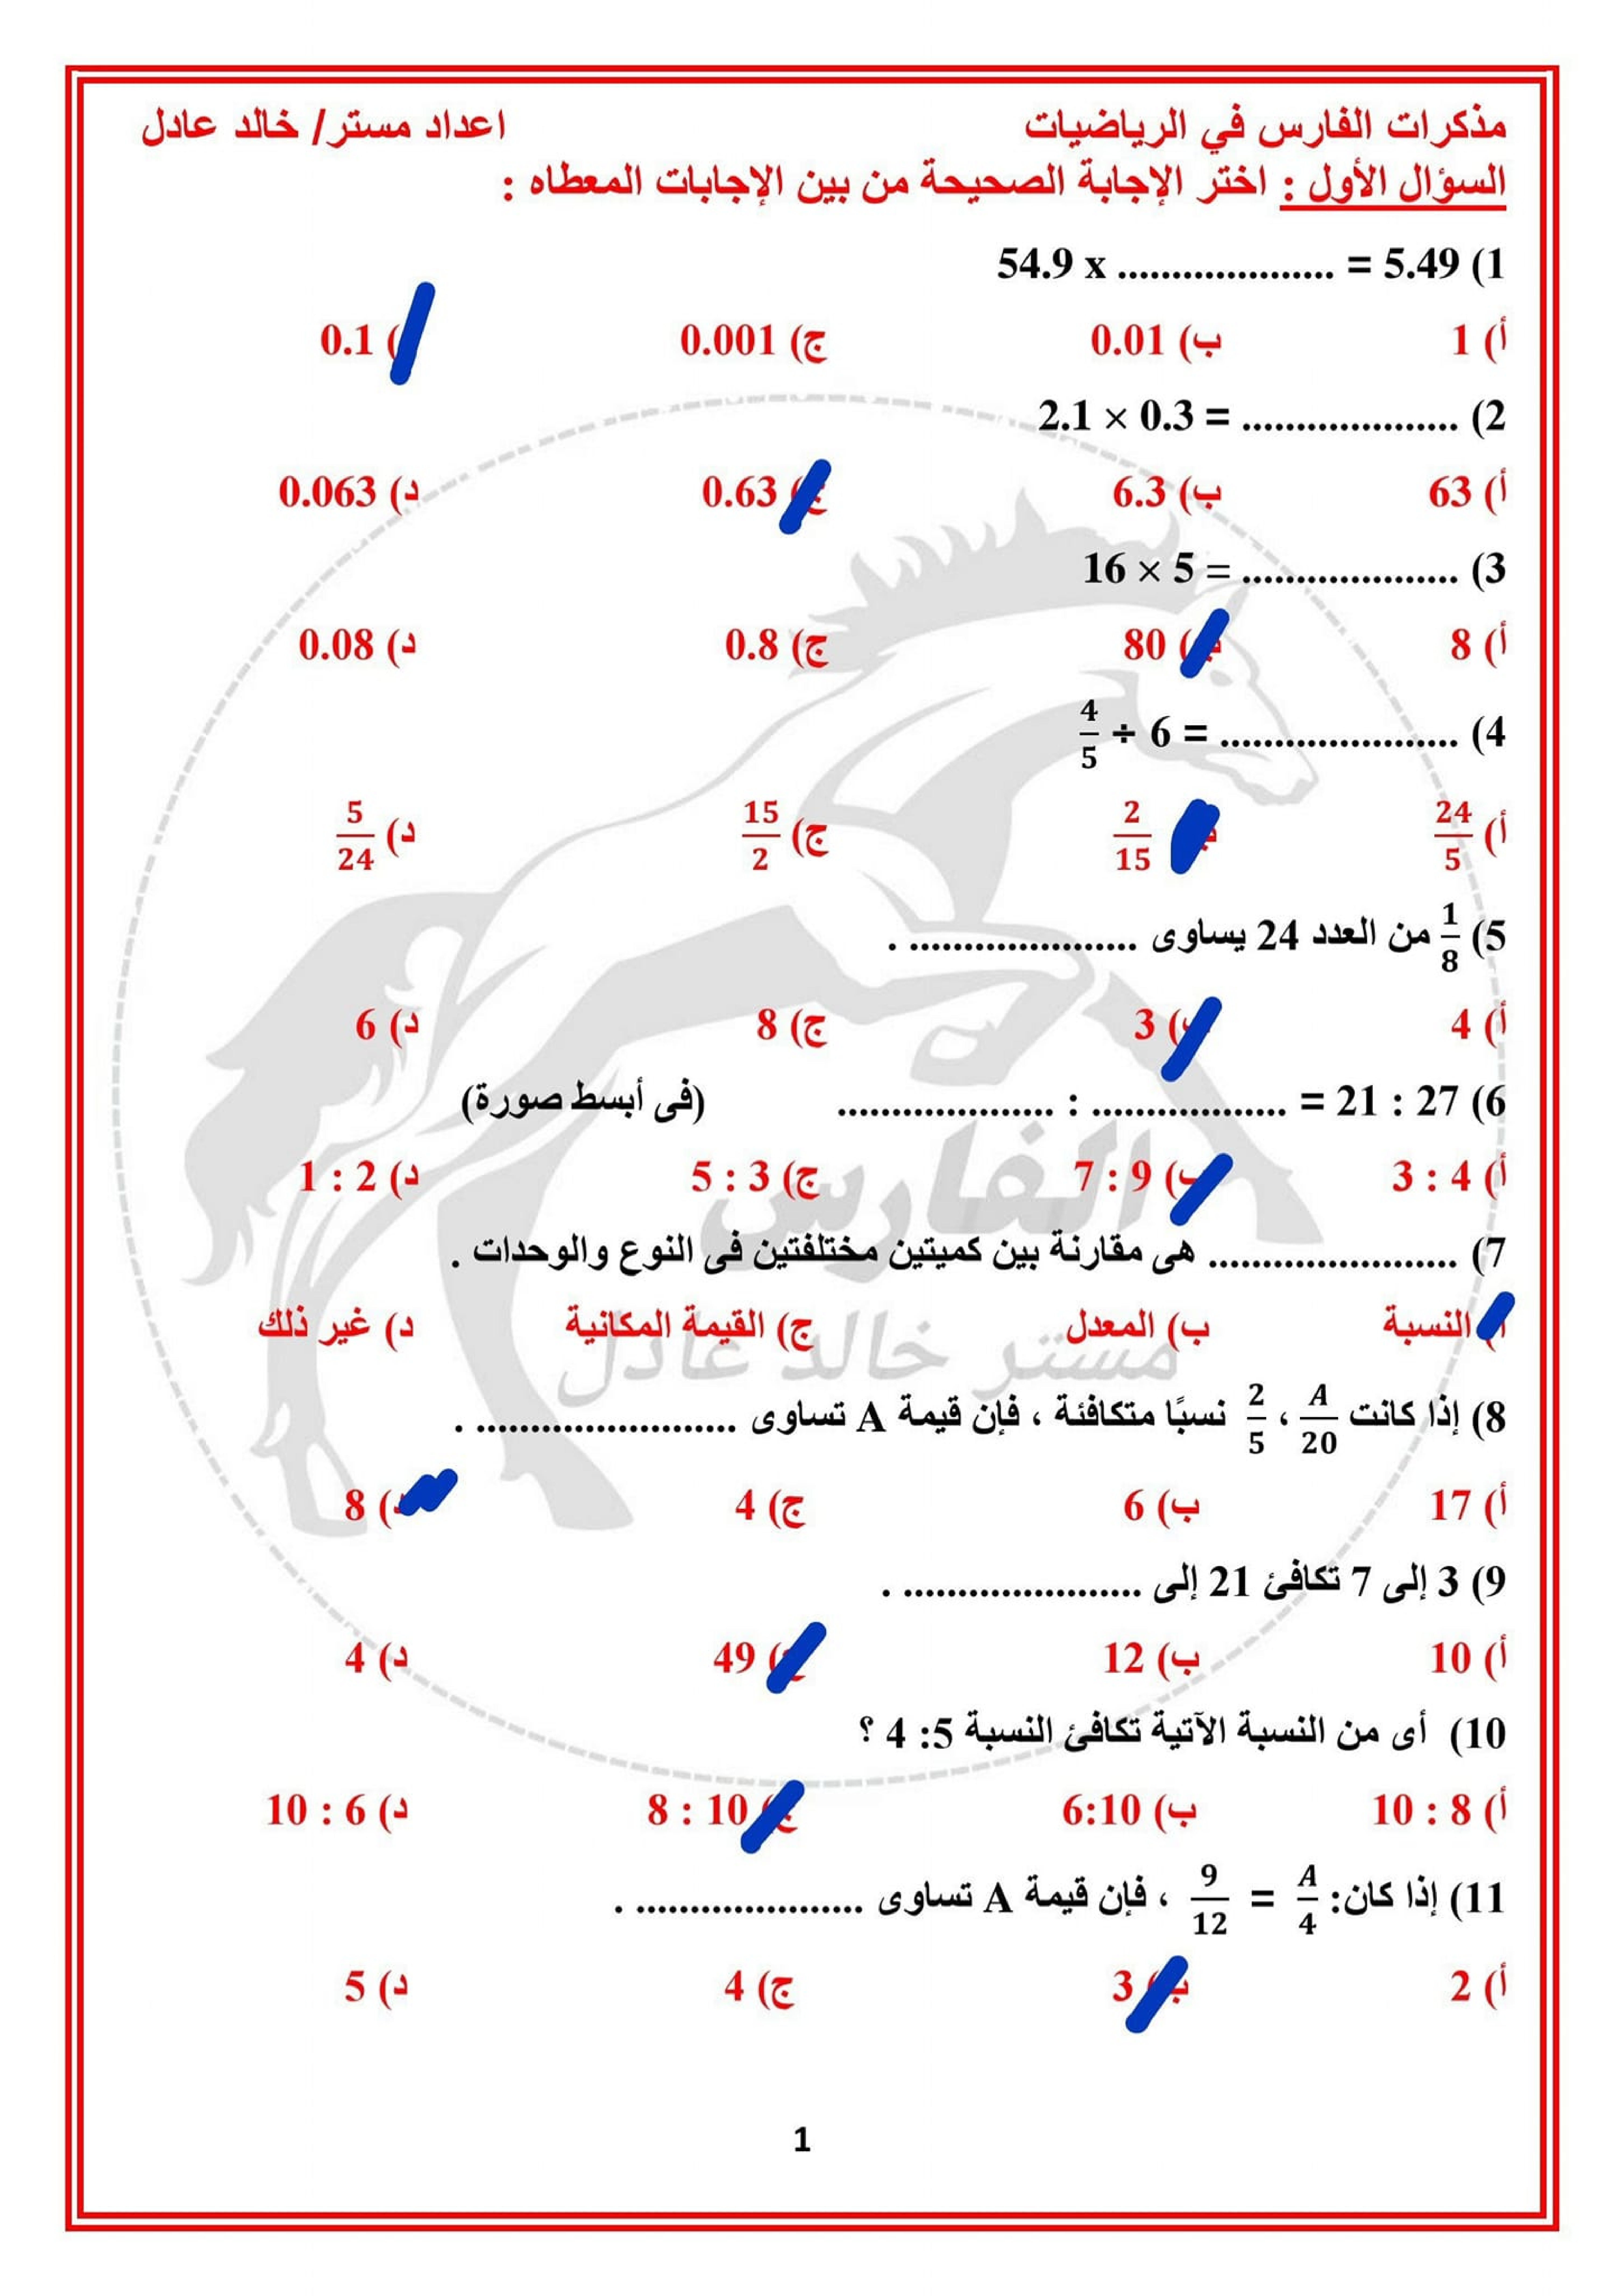 مذكرات الفارس في الرياضيات اعداد مستر/ خالد عادل
السؤال الأول : اختر الإجابة الصحيحة من بين الإجابات المعطاه :
1) 54.9 x .................... = 5.49
أ) 1 ب) 0.01 ج) 0.001 ) 0.1
2) 2.1 × 0.3 = ....................
أ) 63 ب) 6.3 ج) 0.63 د) 0.063
3) 16 × 5 = ....................
أ) 8 ب) 80 ج) 0.8 د) 0.08
4) 4/5 ÷ 6 = ......................
أ) 24/5 ب) 2/15 ج) 15/2 د) 5/24
5) 1/8 من العدد 24 يساوى ..................... .
أ) 4 ب) 3 ج) 8 د) 6
6) 27 : 21 = .................. : .................... (فى أبسط صورة)
أ) 4 : 3 ب) 9 : 7 ج) 3 : 5 د) 2 : 1
7) ....................... هى مقارنة بين كميتين مختلفتين فى النوع والوحدات .
أ) النسبة ب) المعدل ج) القيمة المكانية د) غير ذلك
8) إذا كانت A/20 ، 2/5 نسبًا متكافئة ، فإن قيمة A تساوى ........................ .
أ) 17 ب) 6 ج) 4 د) 8
9) 3 إلى 7 تكافئ 21 إلى ...................... .
أ) 10 ب) 12 ج) 49 د) 4
10) أى من النسبة الآتية تكافئ النسبة 5: 4 ؟
أ) 8 : 10 ب) 6:10 ج) 10 : 8 د) 6 : 10
11) إذا كان: A/4 = 9/12 ، فإن قيمة A تساوى ..................... .
أ) 2 ب) 3 ج) 4 د) 5
الفارس
مستر خالد عادل
1